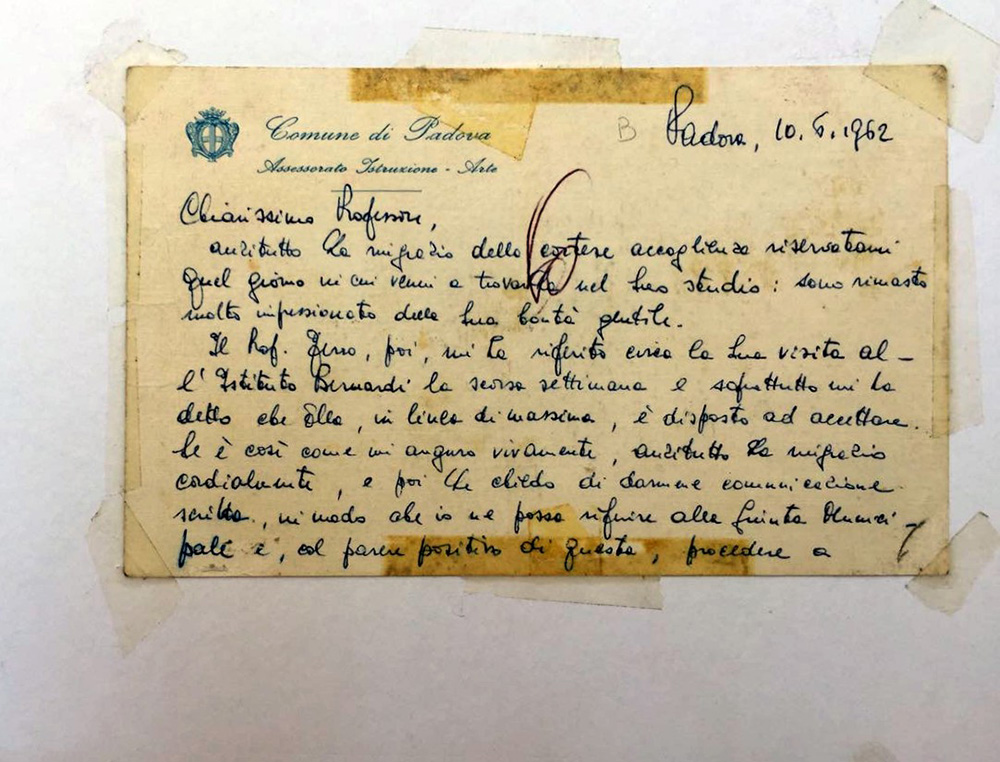 Comune di Padova
Assessorato Istruzione - Arte
B
Padova, 10.6.1962
Chiarissimo Professore,
anzitutto La ringrazio della cortese accoglienza riservatami
quel giorno in cui venni a trovarLa nel Suo studio: sono rimasto
molto impressionato della Sua bontà gentile.
Il Prof. poi, mi ha riferito circa la Sua visita al-
l'Istituto Bernardi la scorsa settimana e soprattutto mi ha
detto che Ella, in linea di massima, è disposto ad accettare.
Se è così come mi auguro vivamente, anzitutto La ringrazio
cordialmente, e poi Le chiedo di darmene comunicazione
scritta, in modo che io ne possa riferire alla Giunta Munici-
pale e, col parere positivo di questa, procedere a